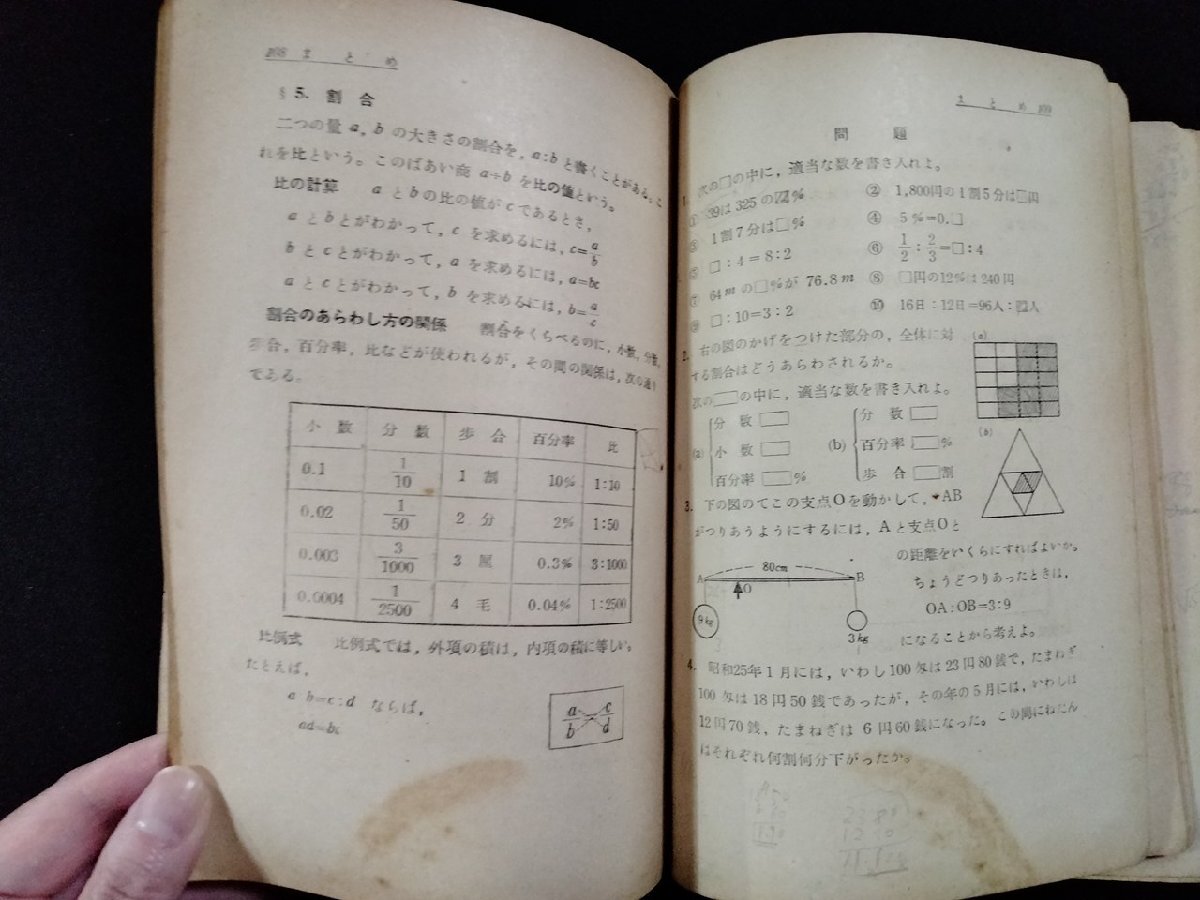 108 まとめ
§5. 割合
二つの量 a, b の大きさの割合を, a:b と書くことがある。こ
れを比という。このばあい商 a÷b を比の値という。
比の計算 a と b の比の値が c であるとき,
a と b とがわかって, c を求めるには, c=a/b
b と c とがわかって, a を求めるには, a=bc
a と c とがわかって, b を求めるには, b=a/c
割合のあらわし方の関係 割合をくらべるのに, 小数, 分数,
歩合, 百分率, 比などが使われるが, その間の関係は, 次の通り
である。
小数 分数 歩合 百分率 比
0.1 1/10 1割 10% 1:10
0.02 1/50 2分 2% 1:50
0.003 3/1000 3厘 0.3% 3:1000
0.0004 1/2500 4毛 0.04% 1:2500
比例式 比例式では, 外項の積は, 内項の積に等しい。
たとえば,
a:b=c:d ならば,
ad=bc
a c
b d
まとめ 109
問題
1. 次の□の中に, 適当な数を書き入れよ。
① 39は 325 の□%
② 1,800円の1割5分は□円
③ 1割7分は□%
④ 5%=0.□
⑤ □:4=8:2
⑥ 1/2:2/3=□:4
⑦ 64m の□%が 76.8m
⑧ □円の12%は 240円
⑨ □:10=3:2
⑩ 16日:12日=96人:□人
2. 右の図のかげをつけた部分の, 全体に対
する割合はどうあらわされるか。
次の□の中に, 適当な数を書き入れよ。
(a) 分数□
小数□
百分率□%
(b) 分数□
百分率□%
歩合□割
(a)
(b)
3. 下の図のてこの支点Oを動かして, AB
がつりあうようにするには, Aと支点Oと
の距離をいくらにすればよいか。
ちょうどつりあったときは,
OA:OB=3:9
になることから考えよ。
80cm
A O B
9kg
3kg
4. 昭和25年1月には, いわし100匁は23円80銭で, たまねぎ
100匁は18円50銭であったが, その年の5月には, いわしは
12円70銭, たまねぎは 6円60銭になった。この間にねだん
はそれぞれ何割何分下がったか。